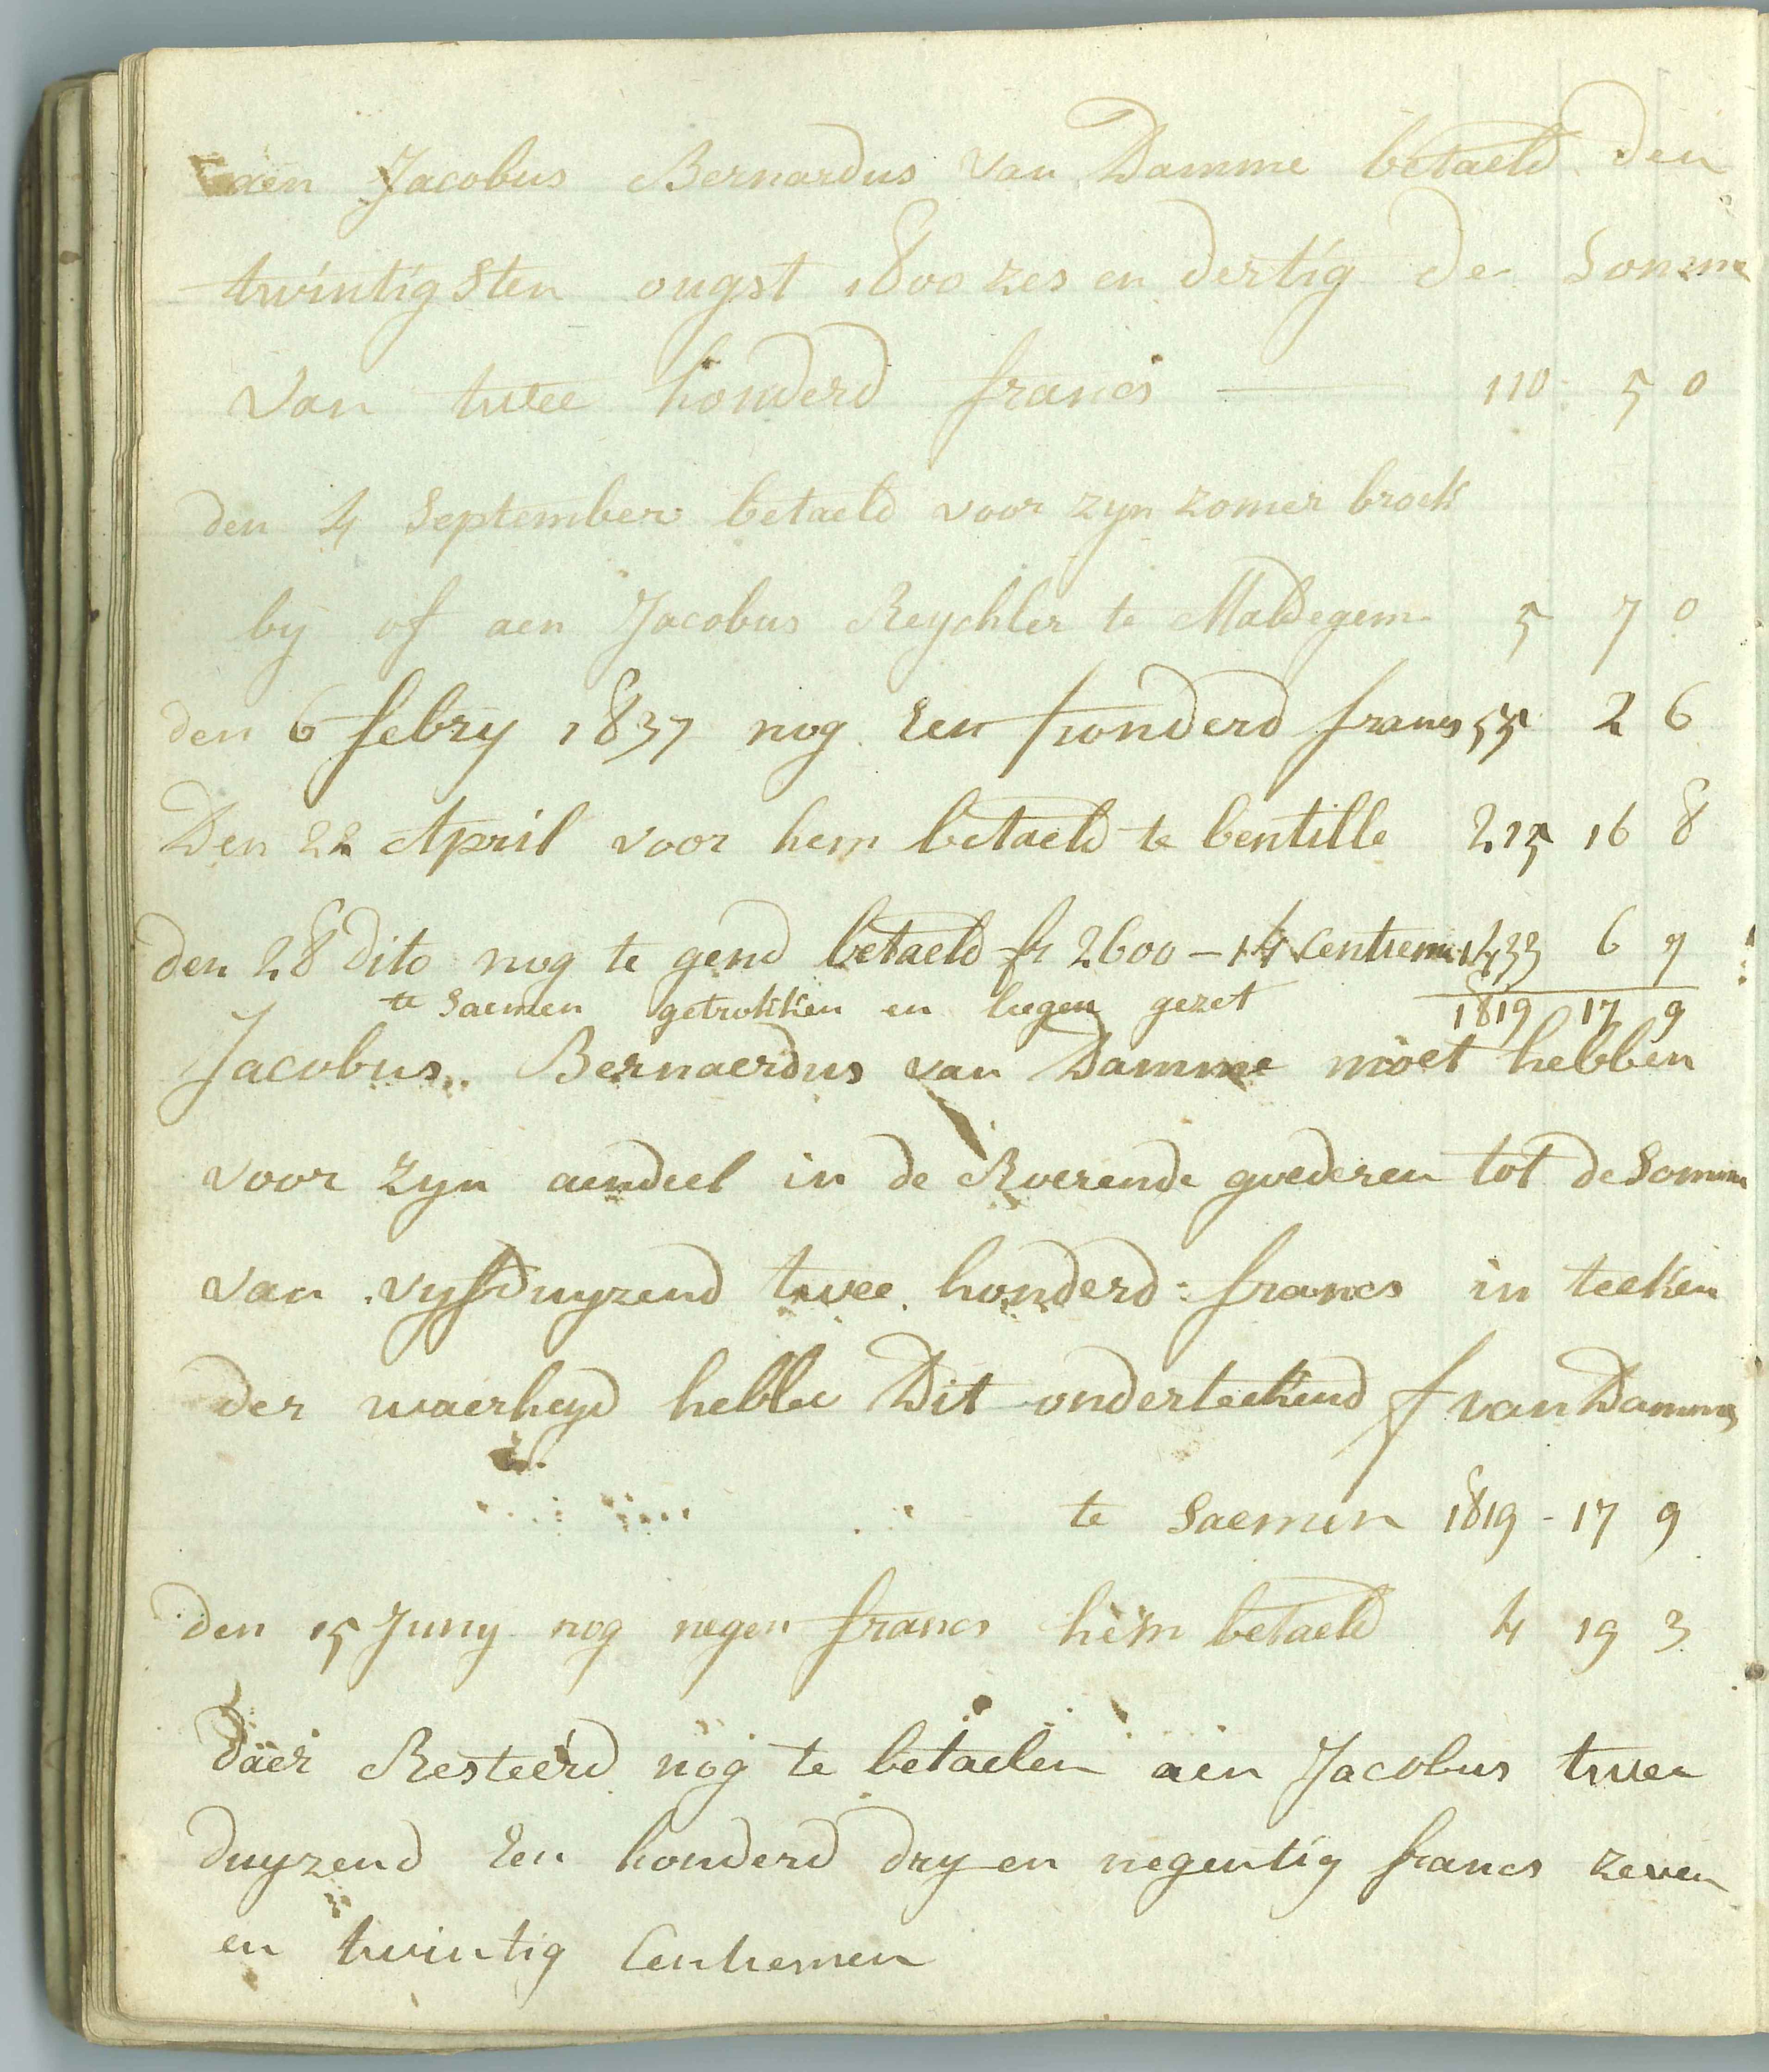 aen Jacobus Bernardus van Damme betaeld den
twintigsten ougst 1800 zes en dertig de Somme
van twee honderd francs — 110 5 0
den 4 September betaeld voor zyn zomer broek
by of aen Jacobus Reychler te Maldegem 5 7 0
den 6 febry 1837 nog Een honderd francs 55 2 6
Den 22 April voor hem betaeld te bentille 215 16 8
den 28 dito nog te gend betaeld fr 2600 - 14 Centiemen 1433 6 9
te saemen getrokken en liegen gezet 1819 17 9
Jacobus Bernaerdus van Damme moet hebben
voor zyn aendeel in de Roerende goederen tot de Somme
van vyfduyzend twee honderd francs in teeken
der waerheyd hebbe Dit onderteekend f van Damme
te saemen 1819 - 17 9
den 15 Juny nog negen francs hem betaeld 4 19 3
daer Resteerd nog te betaelen aen Jacobus twee
duyzend Een honderd dry en negentig francs zeven
en twintig Centiemen